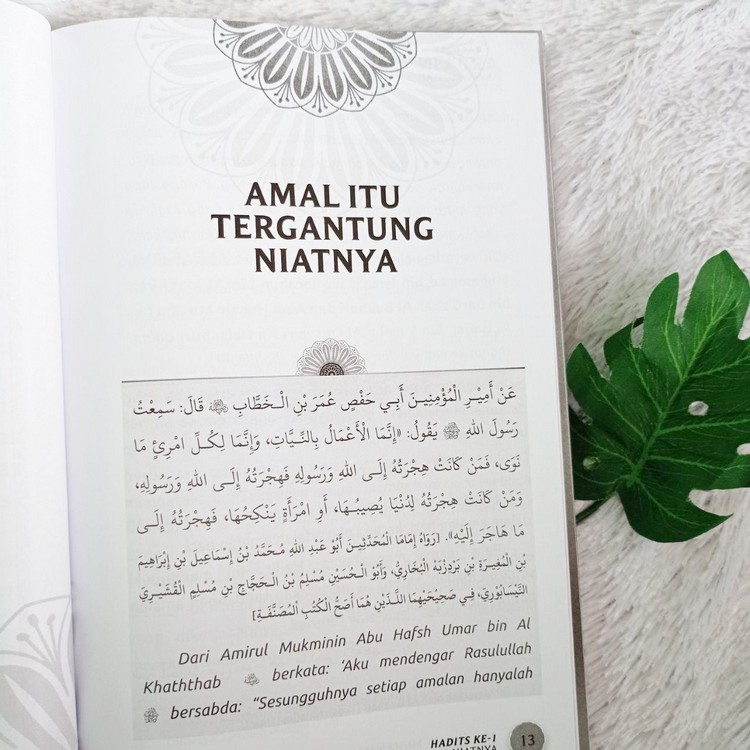 AMAL ITU
TERGANTUNG
NIATNYA
عَنْ أَمِيْرِ الْمُؤْمِنِيْنَ أَبِي حَفْصٍ عُمَرَ بْنِ الْخَطَّابِ ﷺ قَالَ: سَمِعْتُ
رَسُولَ اللهِ ﷺ يَقُولُ: «إِنَّمَا الْأَعْمَالُ بِالنِّيَّاتِ، وَإِنَّمَا لِكُلِّ امْرِئٍ مَا
نَوَى، فَمَنْ كَانَتْ هِجْرَتُهُ إِلَى اللهِ وَرَسُولِهِ فَهِجْرَتُهُ إِلَى اللهِ وَرَسُولِهِ،
وَمَنْ كَانَتْ هِجْرَتُهُ لِدُنْيَا يُصِيبُهَا، أَوِ امْرَأَةٍ يَنْكِحُهَا، فَهِجْرَتُهُ إِلَى
مَا هَاجَرَ إِلَيْهِ». [رَوَاهُ إِمَامَا الْمُحَدِّثِيْنَ أَبُو عَبْدِ اللهِ مُحَمَّدُ بْنُ إِسْمَاعِيلَ بْنِ إِبْرَاهِيمَ
بْنِ الْمُغِيرَةِ بْنِ بَرْدِزْبَهْ الْبُخَارِيُّ، وَأَبُو الْحُسَيْنِ مُسْلِمُ بْنُ الْحَجَّاجِ بْنِ مُسْلِمٍ الْقُشَيْرِيُّ
النَّيْسَابُورِيُّ، فِي صَحِيْحَيْهِمَا اللَّذَيْنِ هُمَا أَصَحُّ الْكُتُبِ الْمُصَنَّفَةِ]
Dari Amirul Mukminin Abu Hafsh Umar bin Al
Khaththab berkata: ‘Aku mendengar Rasulullah
ﷺ bersabda: “Sesungguhnya setiap amalan hanyalah
HADITS KE-1
NIATNYA
13